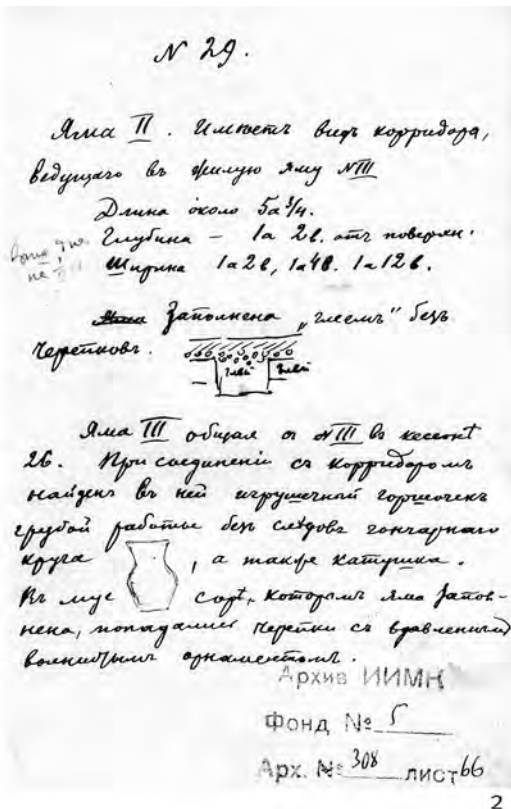 N 29.
Яма II. Имѣетъ видъ корридора,
ведущаго въ жилую яму NIII
Длина около 5а 3/4.
Глубина – 1а 2в. отъ поверхн.
Ширина 1а2в, 1а4в. 1а12в.
Заполнена „глеемъ" безъ
черепковъ.
глей глей
Яма III общая съ NIII въ кессонѣ
26. При соединеніи съ корридоромъ
найденъ въ ней игрушечный горшочекъ
грубой работы безъ слѣдовъ гончарнаго
круга , а также катушка.
Въ мусорѣ, которымъ яма запол-
нена, попадались черепки съ вдавленнымъ
волнистымъ орнаментомъ.
Архив ИИМК
Фонд № 5
Арх. № 308 лист 66
2